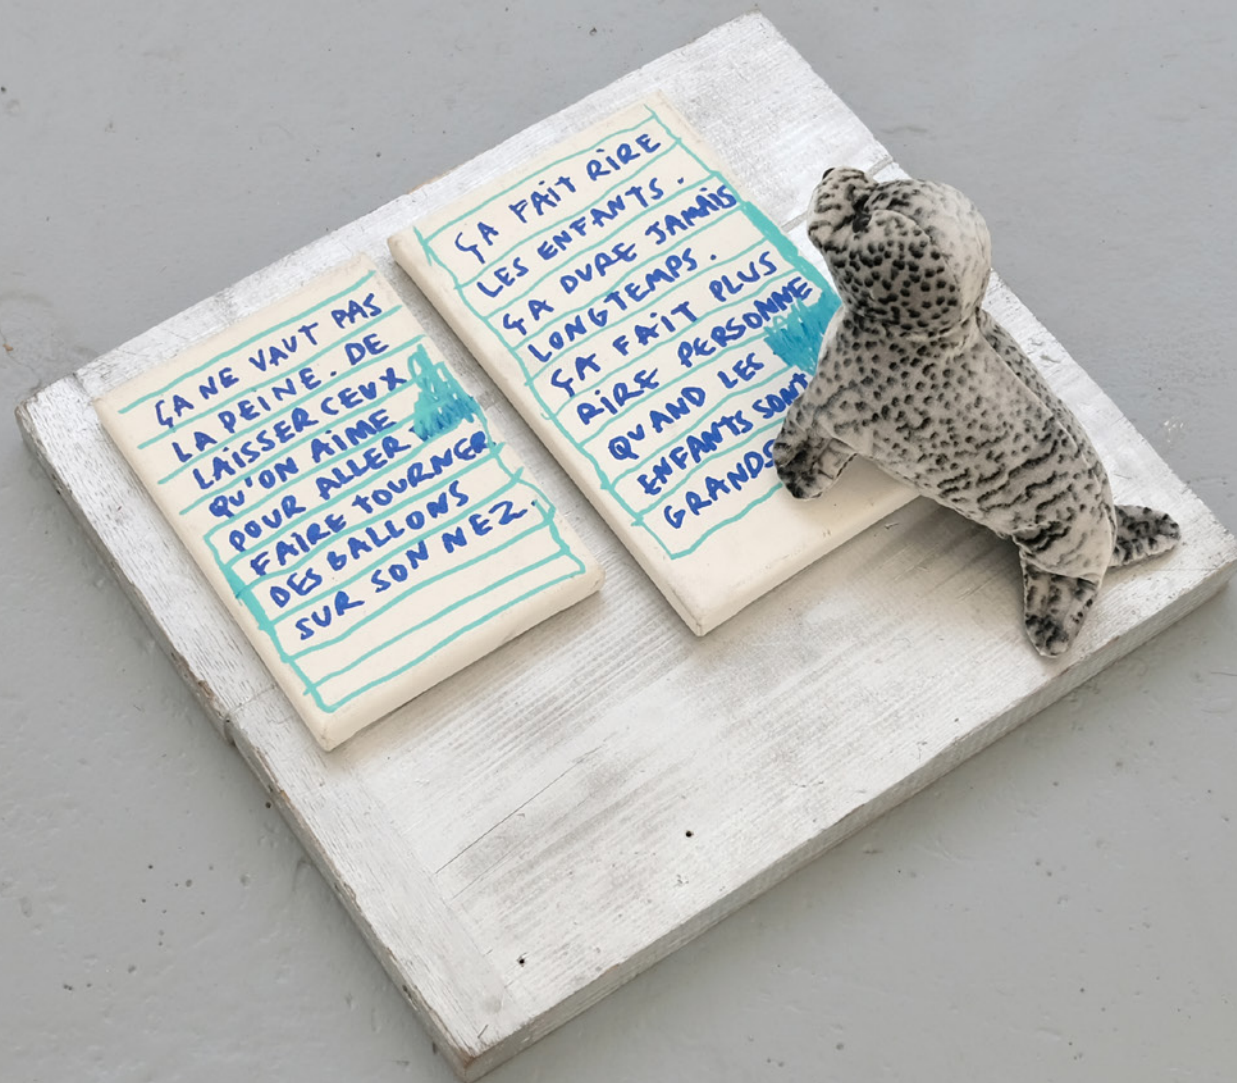 ÇA NE VAUT PAS
LA PEINE. DE
LAISSER CEUX
QU'ON AIME
POUR ALLER
FAIRE TOURNER
DES BALLONS
SUR SON NEZ.
ÇA FAIT RIRE
LES ENFANTS.
ÇA DURE JAMAIS
LONGTEMPS.
ÇA FAIT PLUS
RIRE PERSONNE
QUAND LES
ENFANTS SONT
GRANDS